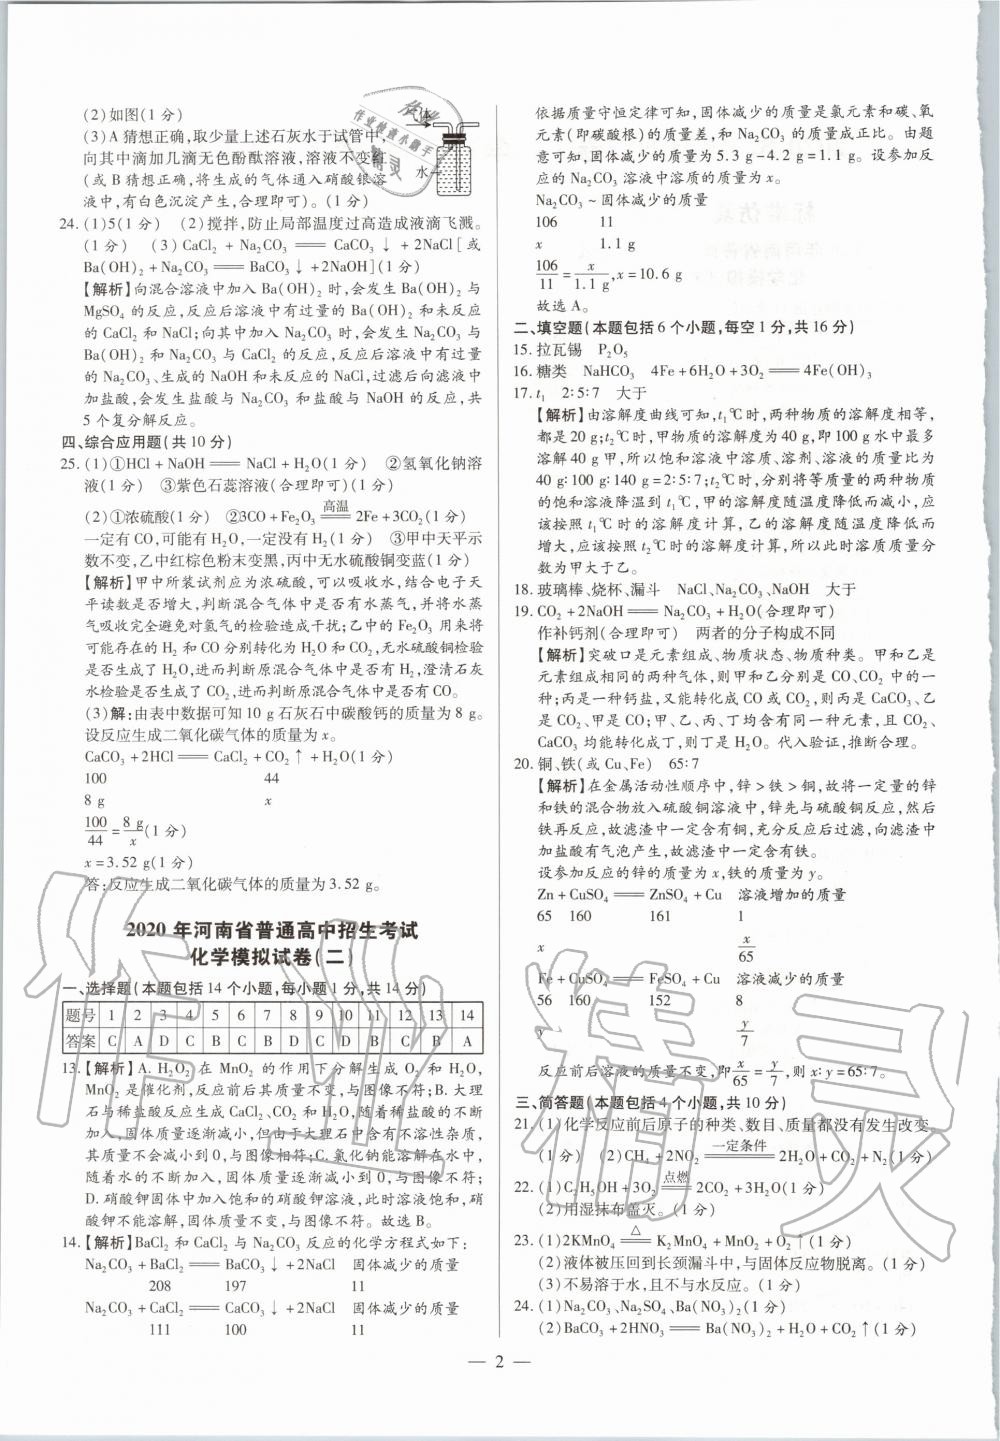 (2)如图(1 分)
(3)A 猜想正确,取少量上述石灰水于试管中,
向其中滴加几滴无色酚酞溶液,溶液不变红
(或 B 猜想正确,将生成的气体通入硝酸银溶
液中,有白色沉淀产生,合理即可)。(1 分)
气体
水
24. (1)5(1 分) (2)搅拌,防止局部温度过高造成液滴飞溅。
(1 分) (3) CaCl₂ + Na₂CO₃ ══ CaCO₃↓ + 2NaCl [ 或
Ba(OH)₂ + Na₂CO₃ ══ BaCO₃↓ +2NaOH](1 分)
【解析】向混合溶液中加入 Ba(OH)₂ 时,会发生 Ba(OH)₂ 与
MgSO₄ 的反应,反应后溶液中有过量的 Ba(OH)₂ 和未反应
的 CaCl₂ 和 NaCl;向其中加入 Na₂CO₃ 时,会发生 Na₂CO₃ 与
Ba(OH)₂ 和 Na₂CO₃ 与 CaCl₂ 的反应,反应后溶液中有过量
的 Na₂CO₃、生成的 NaOH 和未反应的 NaCl,过滤后向滤液中
加盐酸,会发生盐酸与 Na₂CO₃ 和盐酸与 NaOH 的反应,共
5 个复分解反应。
四、综合应用题(共 10 分)
25. (1)①HCl + NaOH ══ NaCl + H₂O(1 分) ②氢氧化钠溶
液(1 分) ③紫色石蕊溶液(合理即可)(1 分)
(2)①浓硫酸(1 分) ②3CO + Fe₂O₃ ══高温══ 2Fe + 3CO₂(1 分)
一定有 CO,可能有 H₂O,一定没有 H₂(1 分) ③甲中天平示
数不变,乙中红棕色粉末变黑,丙中无水硫酸铜变蓝(1 分)
【解析】甲中所装试剂应为浓硫酸,可以吸收水,结合电子天
平读数是否增大,判断混合气体中是否有水蒸气,并将水蒸
气吸收完全避免对氢气的检验造成干扰;乙中的 Fe₂O₃ 用来将
可能存在的 H₂ 和 CO 分别转化为 H₂O 和 CO₂,无水硫酸铜检验
是否生成了 H₂O,进而判断原混合气体中是否有 H₂,澄清石灰
水检验是否生成了 CO₂,进而判断原混合气体中是否有 CO。
(3)解:由表中数据可知 10 g 石灰石中碳酸钙的质量为 8 g。
设反应生成二氧化碳气体的质量为 x。
CaCO₃ +2HCl ══ CaCl₂ + CO₂↑ + H₂O(1 分)
100 44
8 g x
100/44 = 8 g/x (1 分)
x = 3.52 g(1 分)
答:反应生成二氧化碳气体的质量为 3.52 g。
2020 年河南省普通高中招生考试
化学模拟试卷(二)
一、选择题(本题包括 14 个小题,每小题 1 分,共 14 分)
题号 1 2 3 4 5 6 7 8 9 10 11 12 13 14
答案 C A D C B C B D D D B C B A
13. 【解析】A. H₂O₂ 在 MnO₂ 的作用下分解生成 O₂ 和 H₂O,
MnO₂ 是催化剂,反应前后其质量不变,与图像不符;B. 大理
石与稀盐酸反应生成 CaCl₂、CO₂ 和 H₂O,随着稀盐酸的不断
加入,固体质量逐渐减小,但由于大理石中含有不溶性杂质,
其质量不会减小到 0,与图像相符;C. 氯化钠能溶解在水中,
随着水的不断加入,固体质量逐渐减小到 0,与图像不符;
D. 硝酸钾固体中加入饱和的硝酸钾溶液,此时溶液饱和,硝
酸钾不能溶解,固体质量不变,与图像不符。故选 B。
14. 【解析】BaCl₂ 和 CaCl₂ 与 Na₂CO₃ 反应的化学方程式如下:
Na₂CO₃ + BaCl₂ ══ BaCO₃↓ +2NaCl 固体减少的质量
208 197 11
Na₂CO₃ + CaCl₂ ══ CaCO₃↓ +2NaCl 固体减少的质量
111 100 11
依据质量守恒定律可知,固体减少的质量是氯元素和碳、氧
元素(即碳酸根)的质量差,和 Na₂CO₃ 的质量成正比。由题
意可知,固体减少的质量为 5.3 g - 4.2 g = 1.1 g。设参加反
应的 Na₂CO₃ 溶液中溶质的质量为 x。
Na₂CO₃ ~ 固体减少的质量
106 11
x 1.1 g
106/11 = x/1.1 g, x = 10.6 g
故选 A。
二、填空题(本题包括 6 个小题,每空 1 分,共 16 分)
15. 拉瓦锡 P₂O₅
16. 糖类 NaHCO₃ 4Fe + 6H₂O + 3O₂ ══ 4Fe(OH)₃
17. t₁ 2∶5∶7 大于
【解析】由溶解度曲线可知,t₁℃时,两种物质的溶解度相等,
都是 20 g;t₂℃时,甲物质的溶解度为 40 g,即 100 g 水中最多
溶解 40 g 甲,所以饱和溶液中溶质、溶剂、溶液的质量比为
40 g∶100 g∶140 g = 2∶5∶7;t₂℃时,分别将等质量的两种物质
的饱和溶液降温到 t₁℃,甲的溶解度随温度降低而减小,应
该按照 t₁℃ 时的溶解度计算,乙的溶解度随温度降低而
增大,应该按照 t₂℃时的溶解度计算,所以此时溶质质量分
数为甲大于乙。
18. 玻璃棒、烧杯、漏斗 NaCl、Na₂CO₃、NaOH 大于
19. CO₂ + 2NaOH ══ Na₂CO₃ + H₂O(合理即可)
作补钙剂(合理即可) 两者的分子构成不同
【解析】突破口是元素组成、物质状态、物质种类。甲和乙是
元素组成相同的两种气体,则甲和乙分别是 CO、CO₂ 中的一
种;丙是一种钙盐,又能转化成 CO 或 CO₂,则丙是 CaCO₃、乙
是 CO₂、甲是 CO;甲、乙、丙、丁均含有同一种元素,且 CO₂、
CaCO₃ 均能转化成丁,则丁是 H₂O。代入验证,推断合理。
20. 铜、铁(或 Cu、Fe) 65∶7
【解析】在金属活动性顺序中,锌 > 铁 > 铜,故将一定量的锌
和铁的混合物放入硫酸铜溶液中,锌先与硫酸铜反应,然后
铁再反应,故滤渣中一定含有铜,充分反应后过滤,向滤渣中
加盐酸有气泡产生,故滤渣中一定含有铁。
设参加反应的锌的质量为 x,铁的质量为 y。
Zn + CuSO₄ ══ ZnSO₄ + Cu 溶液增加的质量
65 160 161 1
x x/65
Fe + CuSO₄ ══ FeSO₄ + Cu 溶液减少的质量
56 160 152 8
y y/7
反应前后溶液的质量不变,即 x/65 = y/7,则 x∶y = 65∶7。
三、简答题(本题包括 4 个小题,共 10 分)
21. (1)化学反应前后原子的种类、数目、质量都没有发生改变。
(1 分) (2)CH₄ + 2NO₂ ══一定条件══ 2H₂O + CO₂ + N₂(1 分)
22. (1)C₂H₅OH + 3O₂ ══点燃══ 2CO₂ + 3H₂O(1 分)
(2)用湿抹布盖灭。(1 分)
23. (1)2KMnO₄ ══△══ K₂MnO₄ + MnO₂ + O₂↑(1 分)
(2)液体被压回到长颈漏斗中,与固体反应物脱离。(1 分)
(3)不易溶于水,且不与水反应。(1 分)
24. (1)Na₂CO₃、Na₂SO₄、Ba(NO₃)₂(1 分)
(2)BaCO₃ +2HNO₃ ══ Ba(NO₃)₂ + H₂O + CO₂↑(1 分)
— 2 —
作业精灵
作业检查小助手
精灵